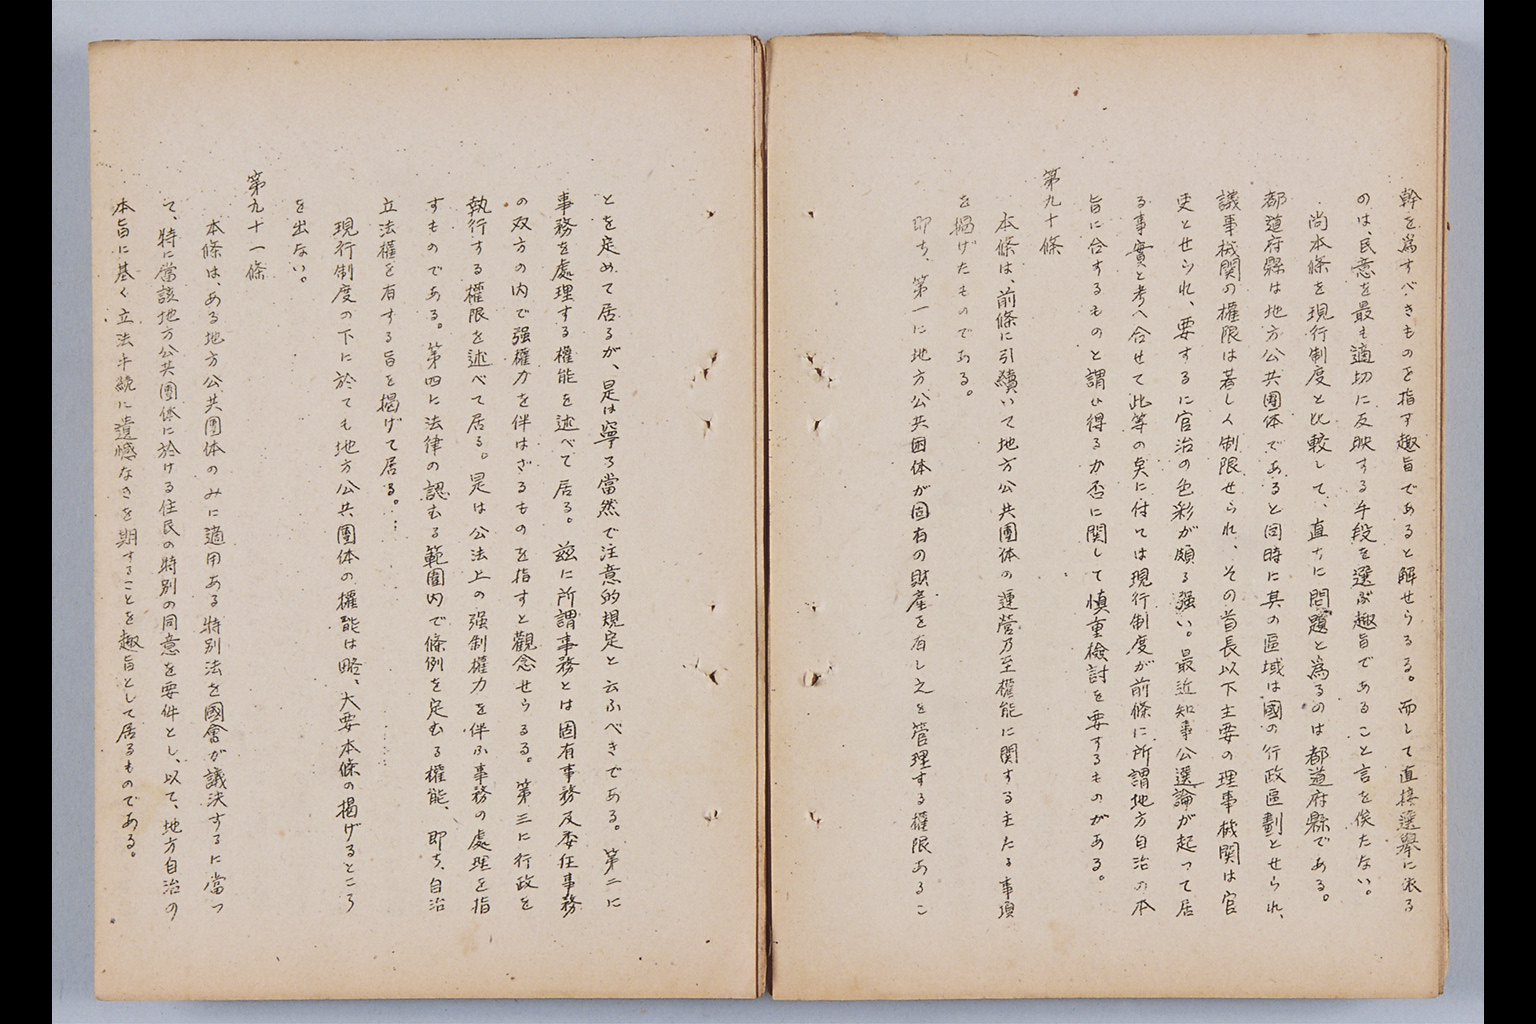 幹を爲すべきものを指す趣旨であると解せらるる。而して直接選擧に依る
のは、民意を最も適切に反映する手段を選ぶ趣旨であること言を俟たない。
尚本條を現行制度と比較して、直ちに問題と爲るのは都道府縣である。
都道府縣は地方公共團体であると同時に其の區域は國の行政區劃とせられ、
議事機関の權限は著しく制限せられ、その首長以下主要の理事機関は官
吏とせられ、要するに官治の色彩が頗る强い。最近知事公選論が起って居
る事實と考へ合せて此等の点に付ては現行制度が前條に所謂地方自治の本
旨に合するものと謂ひ得るか否に関して愼重檢討を要するものがある。
第九十條
本條は、前條に引續いて地方公共團体の運營乃至權能に関する主たる事項
を揭げたものである。
即ち、第一に地方公共団体が固有の財產を有し之を管理する權限あるこ
とを定めて居るが、是は寧ろ當然で注意的規定と云ふべきである。第二に
事務を處理する權能を述べて居る。茲に所謂事務とは固有事務及委任事務
の双方の内で强權力を伴はざるものを指すと觀念せらるる。第三に行政を
執行する權限を述べて居る。是は公法上の强制權力を伴ふ事務の處理を指
すものである。第四に法律の認むる範圍内で條例を定むる權能、即ち自治
立法權を有する旨を揭げて居る。
現行制度の下に於ても地方公共團体の權能は略、大要本條の揭げるところ
を出ない。
第九十一條
本條は、ある地方公共團体のみに適用ある特別法を國會が議決するに當つ
て、特に當該地方公共團体に於ける住民の特別の同意を要件とし、以て、地方自治の
本旨に基く立法手続に遺憾なきを期することを趣旨として居るものである。